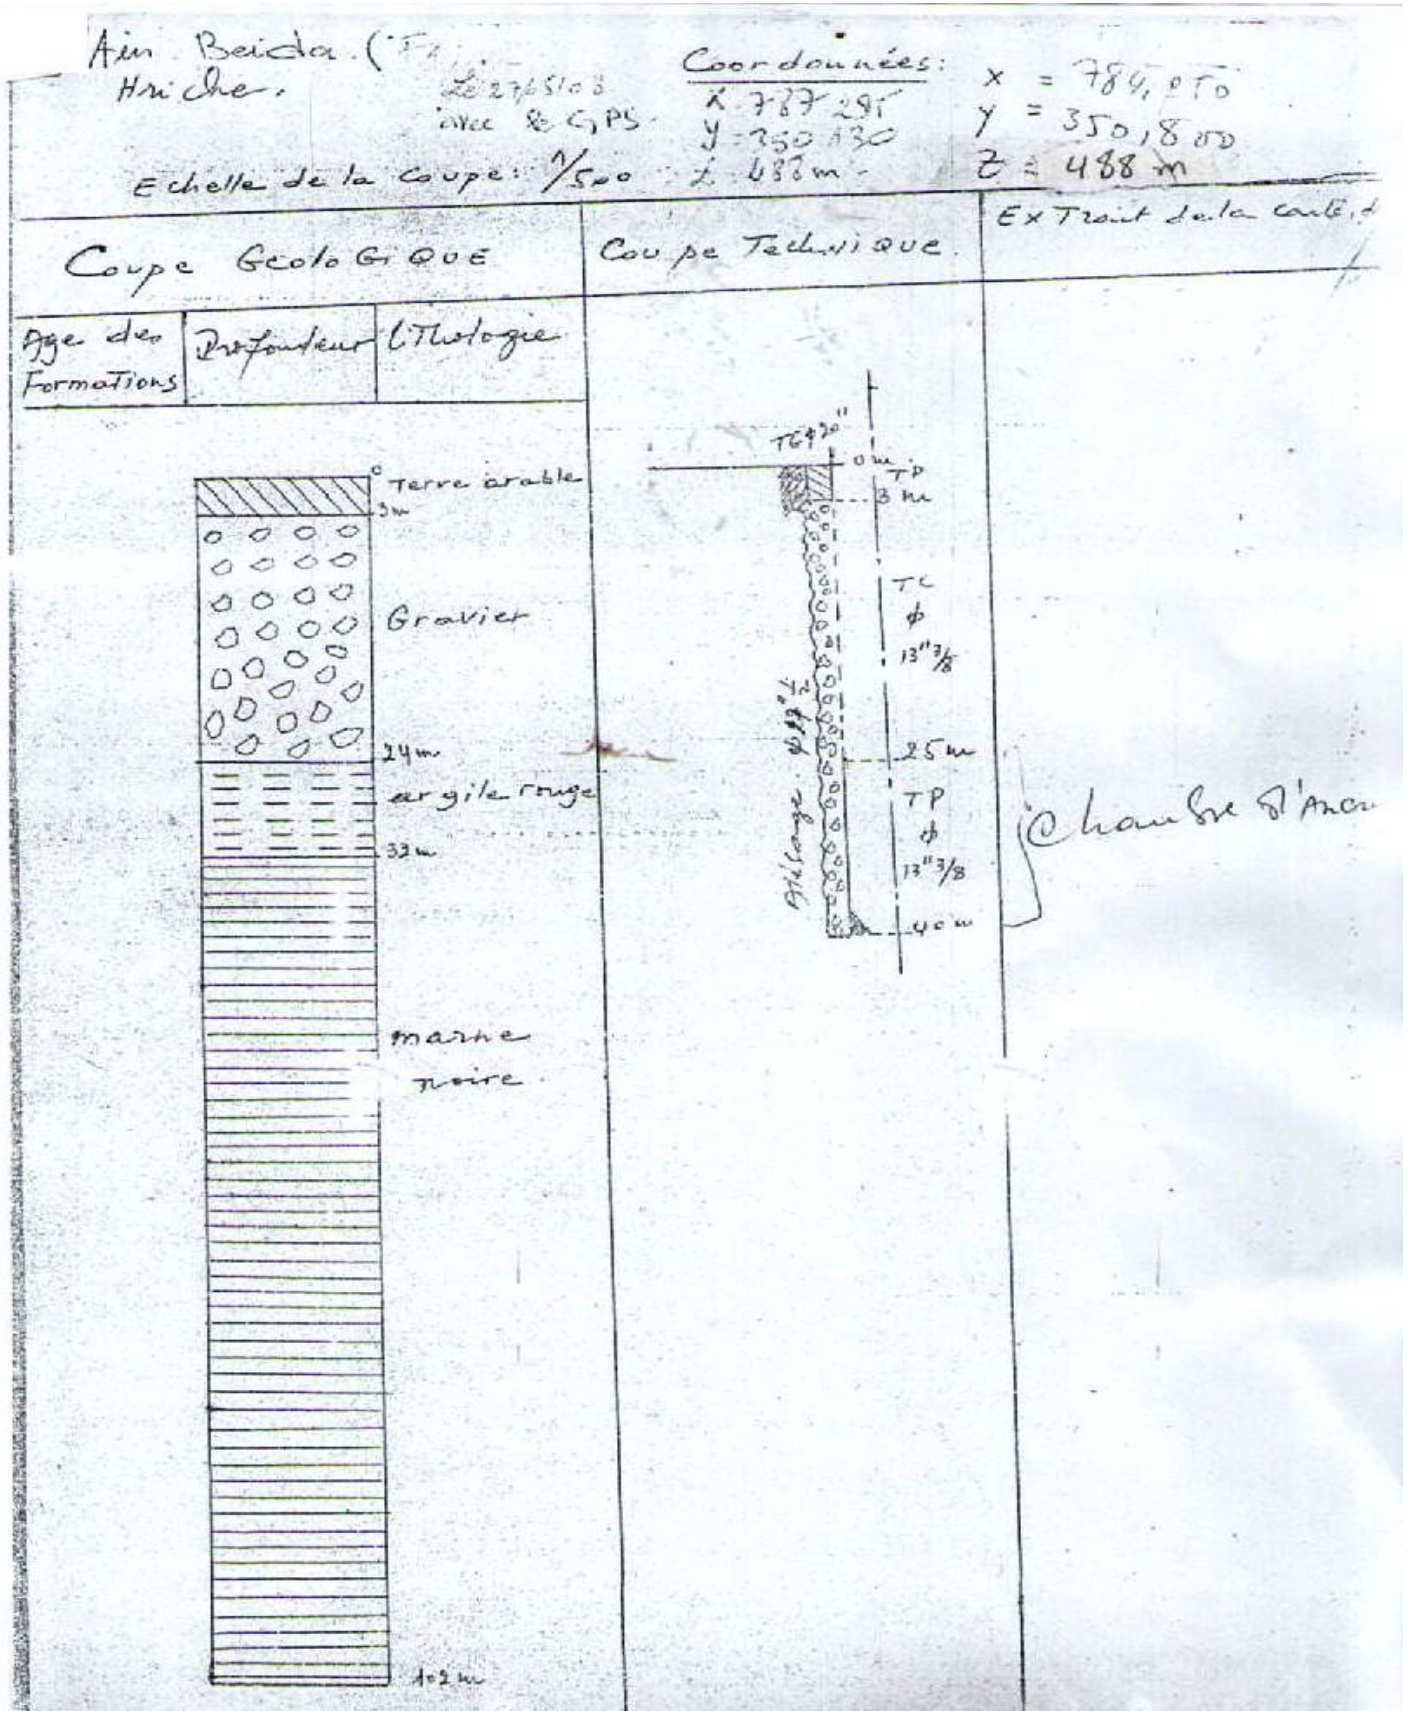 Ain Beida (
Hriche.
Le 27/05/03
avec le GPS
Coordonnées:
X = 787 295
Y = 350 130
Z = 488 m
X = 784,050
Y = 350,800
Z = 488 m
Echelle de la coupe: 1/500
Coupe GeoloGiQUE
Coupe Technique
ExTrait de la carte, d
Age des
FormaTions
Profondeur
LiThologie
0
Terre arable
3m
Gravier
24m
argile rouge
32m
marne
noire
102m
TG φ 20"
0m
TP
3 m
TC
φ
13"3/8
Alésage φ
25 m
TP
φ
13"3/8
40 m
Chambre d'